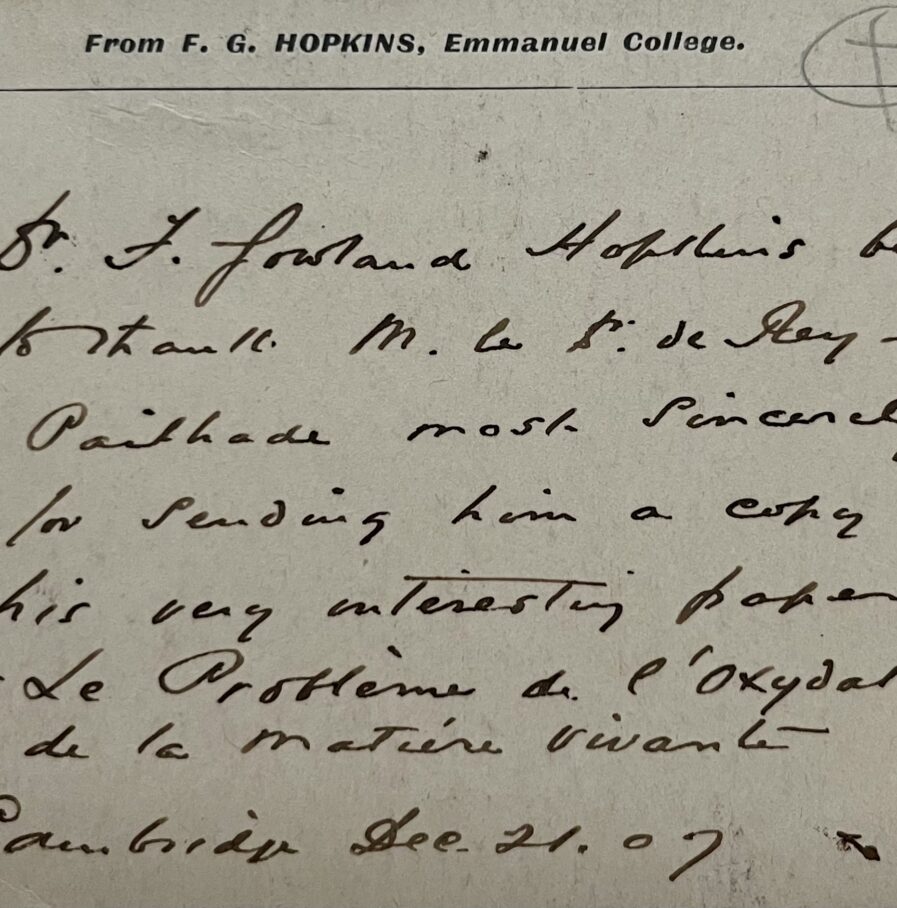 From F. G. HOPKINS, Emmanuel College.
Dr. F. Gowland Hopkins be
to thank M. le Dr. de Rey-
Pailhade most sincerel
for sending him a copy
his very interesting paper
Le Problème de l'Oxydat
de la matière vivante
Cambridge Dec. 21. 07